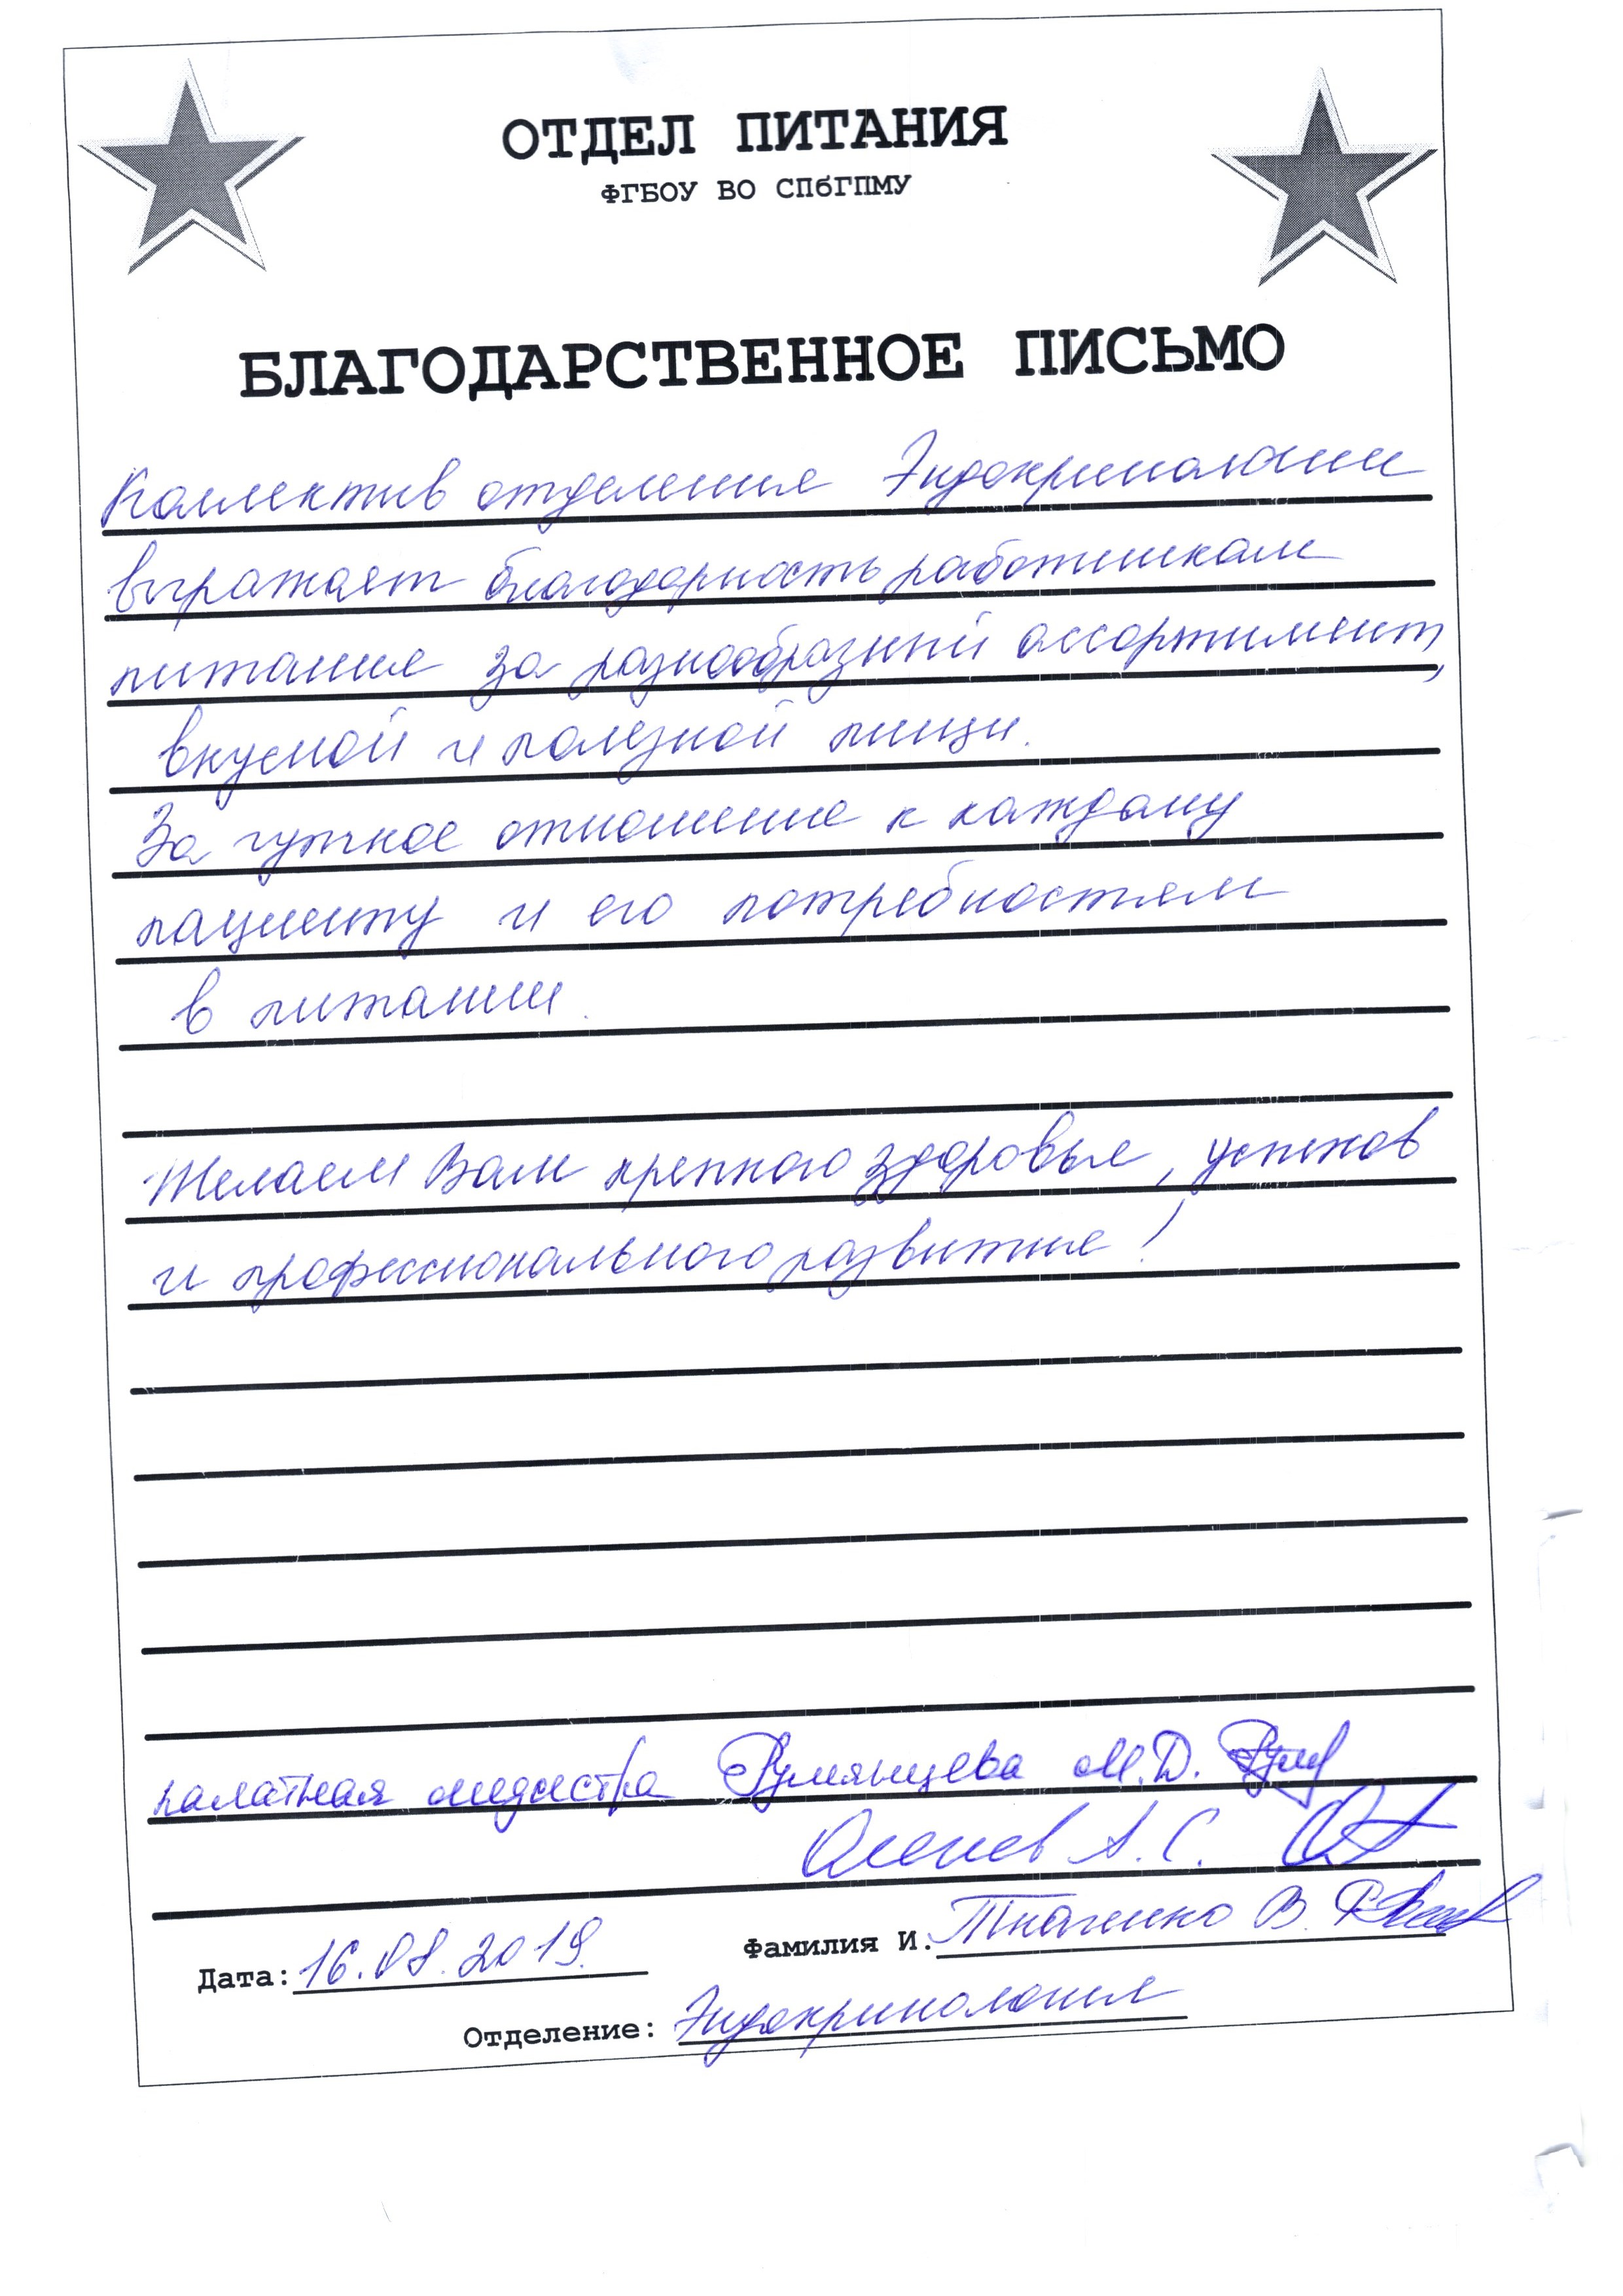 ОТДЕЛ ПИТАНИЯ
ФГБОУ ВО СПбГПМУ
БЛАГОДАРСТВЕННОЕ ПИСЬМО
Коллектив отделения Эндокринологии
выражает благодарность работникам
питания за разнообразный ассортимент,
вкусной и полезной пищи.
За чуткое отношение к каждому
пациенту и его потребностям
в питании.
Желаем Вам крепкого здоровья, успехов
и профессионального развития!
палатная медсестра Румянцева М.Д.
А.С.
Дата: 16.08.2019. Фамилия И. Ткаченко В.
Отделение: Эндокринология